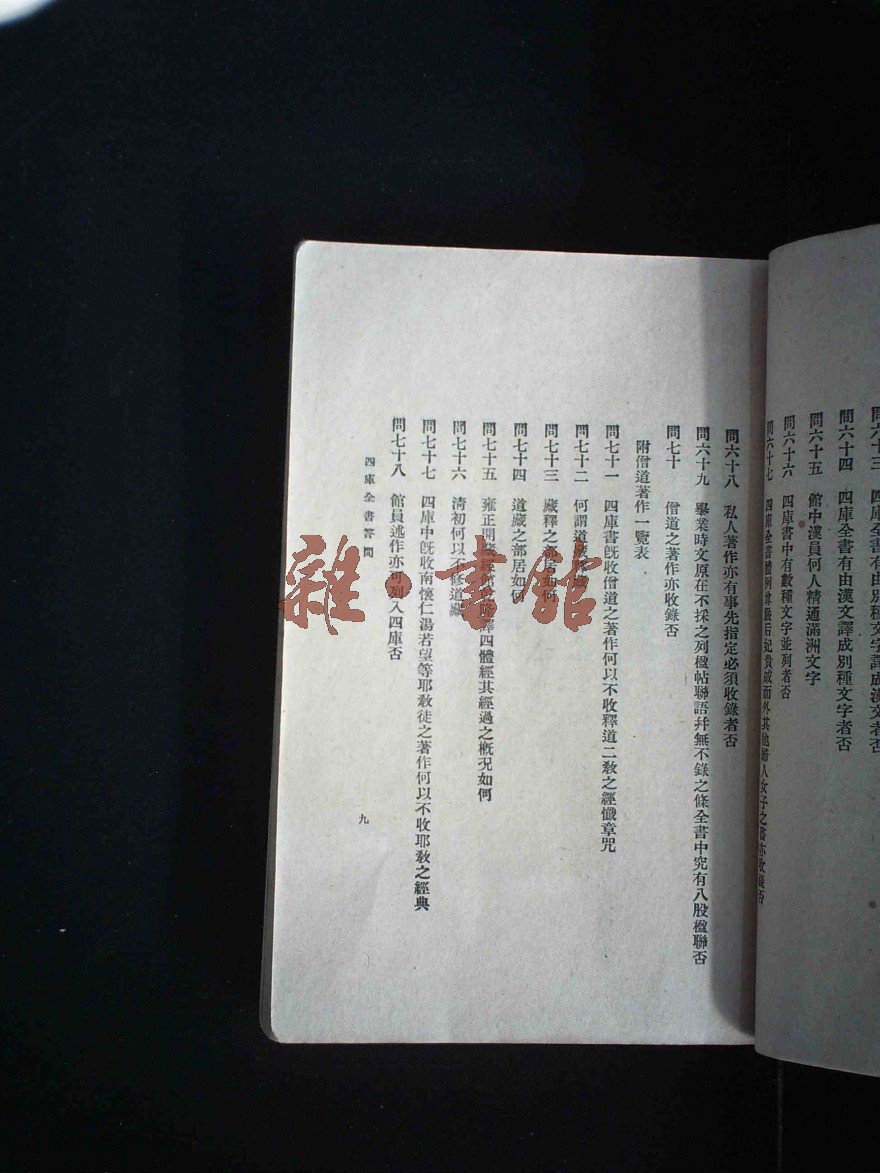 問六十三　四庫全書有由別種文字譯成漢文者否
問六十四　四庫全書有由漢文譯成別種文字者否
問六十五　館中漢員何人精通滿洲文字
問六十六　四庫書中有數種文字並列者否
問六十七　四庫全書體例 后妃貴戚而外其他婦人女子之書亦收錄否
問六十八　私人著作亦有事先指定必須收錄者否
問六十九　舉業時文原在不採之列楹帖聯語幷無不錄之條全書中究有八股楹聯否
問七十　僧道之著作亦收錄否
附僧道著作一覽表
問七十一　四庫書旣收僧道之著作何以不收釋道二敎之經懺章咒
問七十二　何謂道藏釋藏
問七十三　藏釋之部居如何
問七十四　道藏之部居如何
問七十五　雍正開 經館 譯四體經其經過之槪况如何
問七十六　淸初何以不修道藏
問七十七　四庫中旣收南懷仁湯若望等耶敎徒之著作何以不收耶敎之經典
問七十八　館員述作亦可列入四庫否
四庫全書答問
九
雜·書館